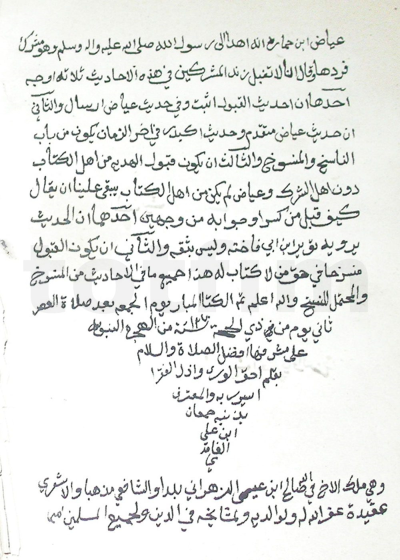 عياض ابن حمار رضي الله اهدا الى رسول الله صلى الله عليه واله وسلم وهو مشرك
فردها وقال انا لا نقبل زبد المشركين في هذه الاحاديث ثلاثة اوجه
احدها ان احديث القبول اثبت وفي حديث عياض ارسال والثاني
ان حديث عياض متقدم وحديث اكيدر في اخر الزمان يكون من باب
الناسخ والمنسوخ والثالث ان يكون قبول الهديه من اهل الكتاب
دون اهل الشرك وعياض لم يكن من اهل الكتاب يبقى علينا ان يقال
كيف قبل من كسرا وجوابه من وجهين احدهما ان الحديث
يرويه ثوير ابن ابي فاخته وليس بثقه والثاني ان يكون القبول
منسوخا في حق من لا كتاب له هذا جميع ما في الاحاديث من المنسوخ
والمحتمل للنسخ والله اعلم تم الكتاب المبارك يوم الجمعه بعد صلاة العصر
ثاني يوم من شهر ذي الحجة من الهجرة النبويه
على مشرفها افضل الصلاة والسلام
بقلم احقر الورى واذل الفقرا
اسير ربه والمعترف
بذنبه جمعان
ابن علي
الغامد
ي
وهي ملك الاخ في الله صالح ابن عيسى الزهراني بلدا والشافعي مذهبا والاشعري
عقيدة عفى الله له ولوالديه ولمشايخه في الدين ولجميع المسلمين امين